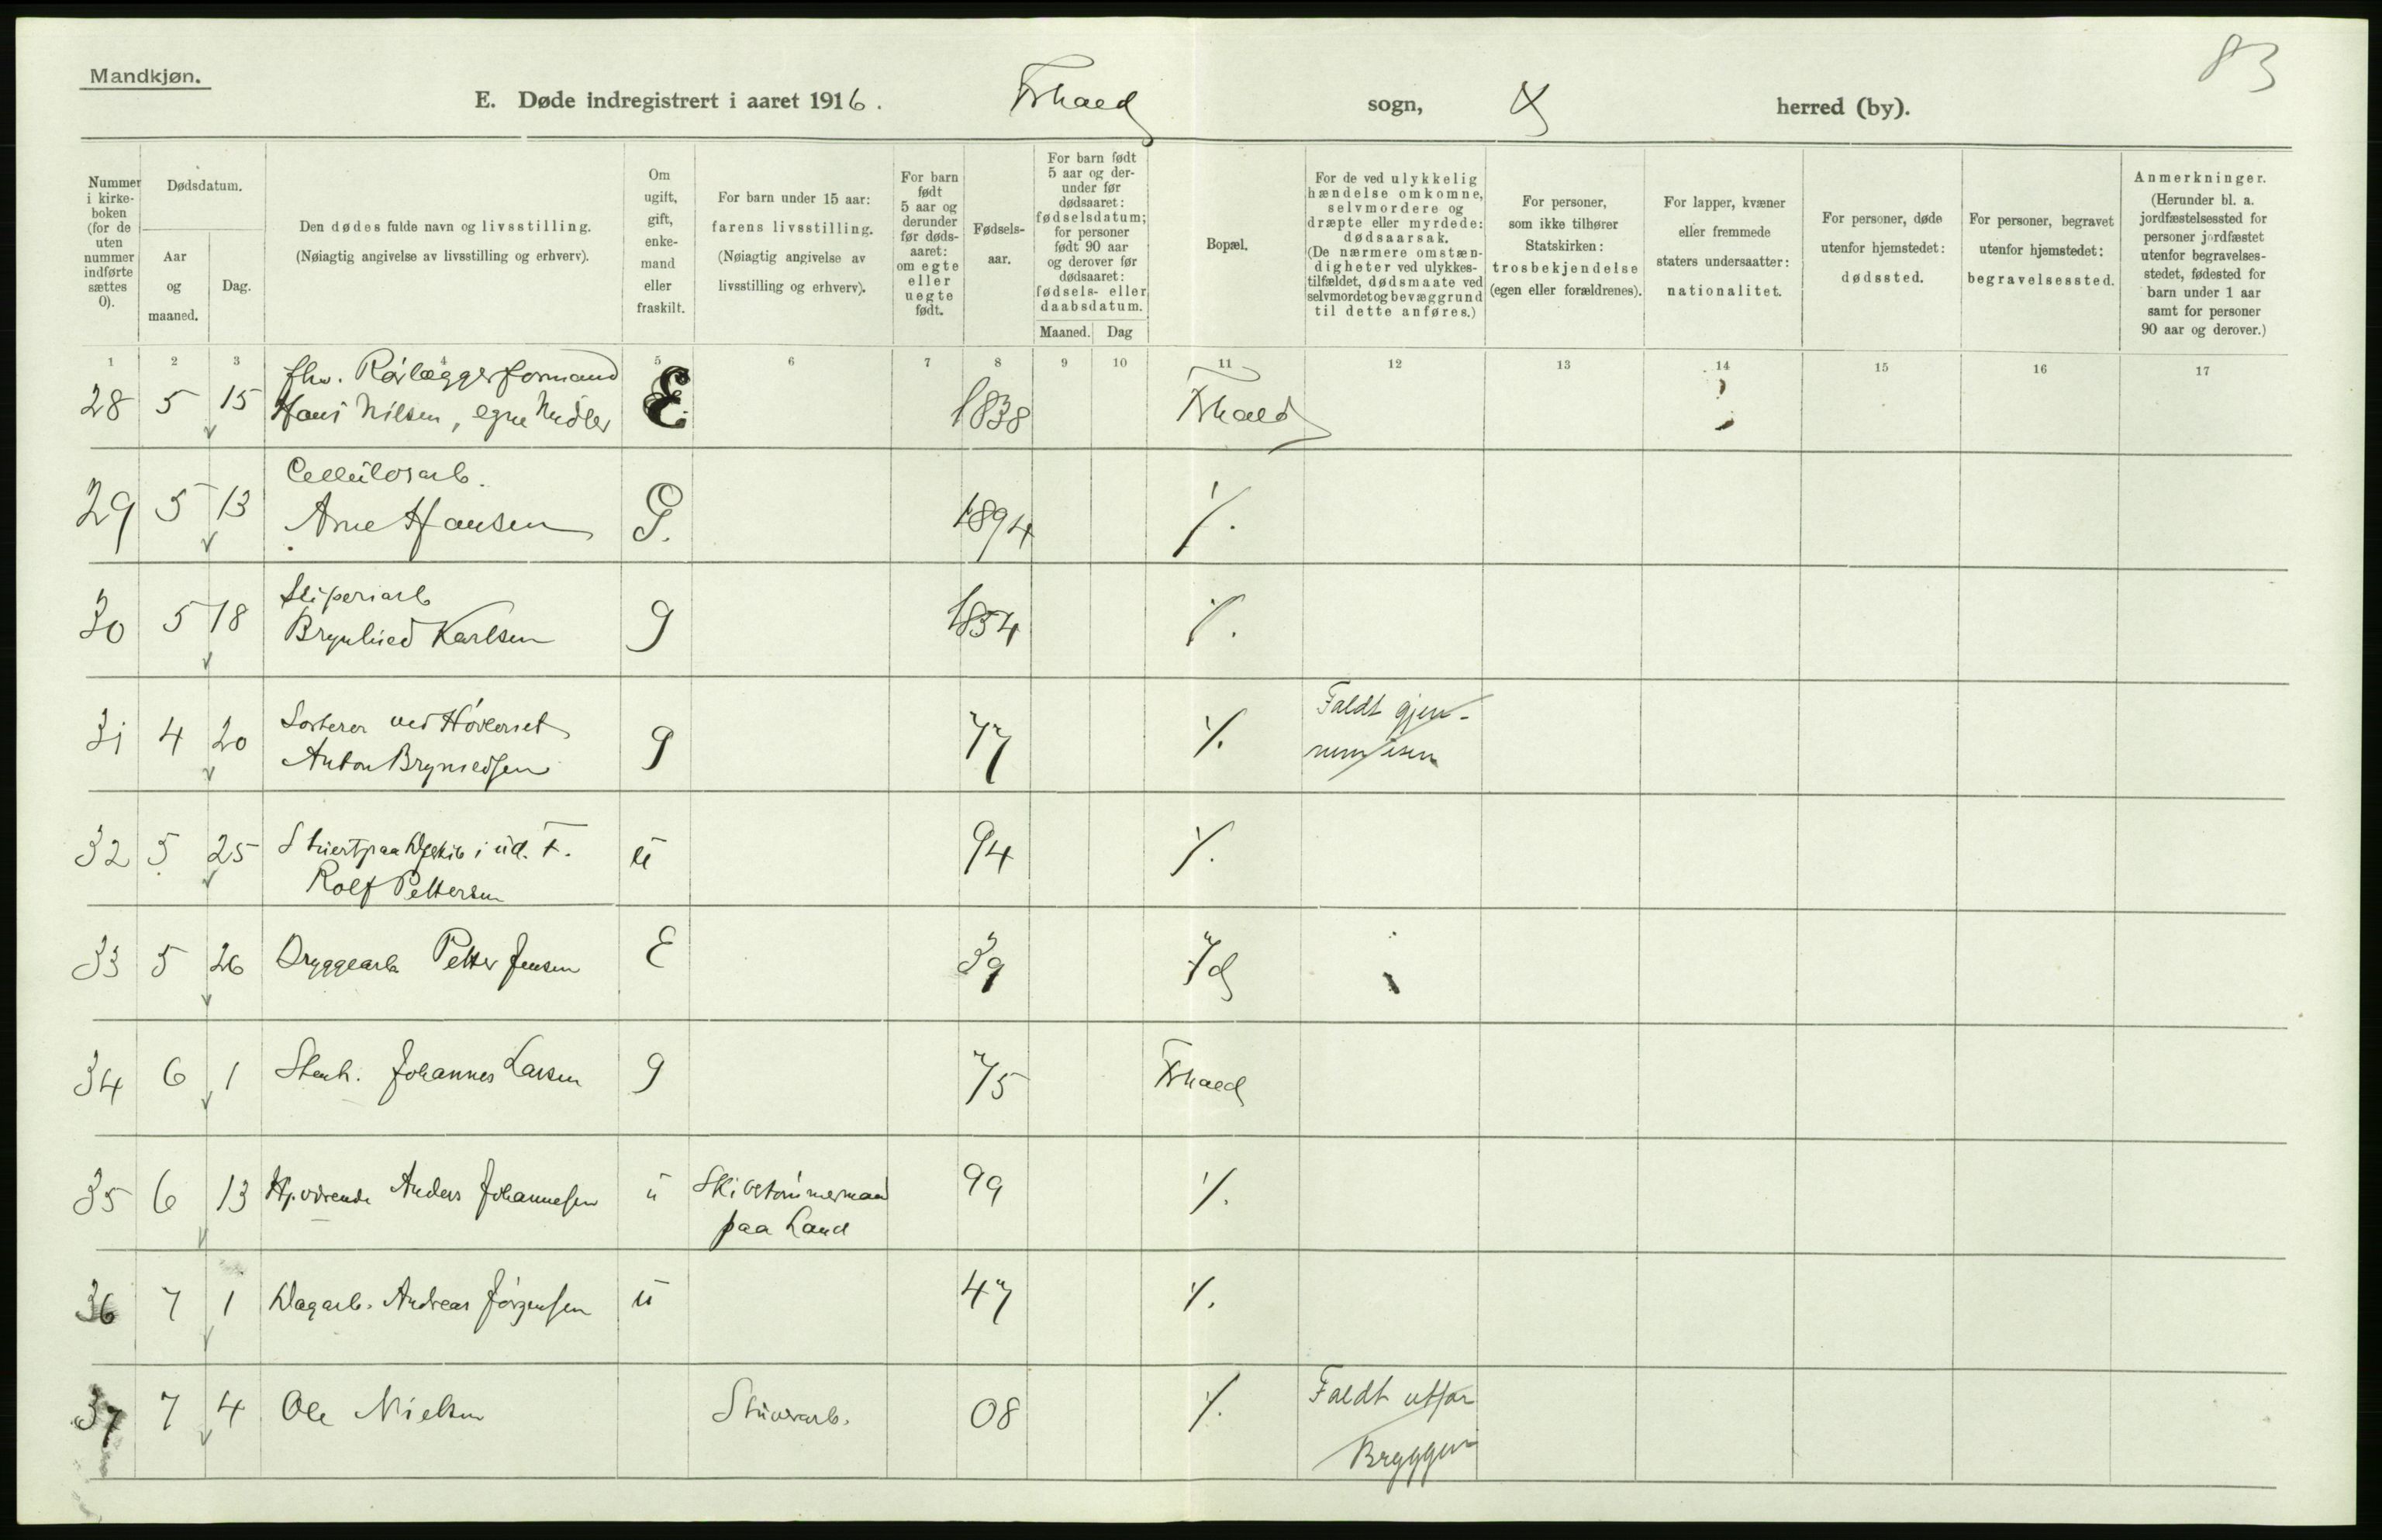 83
Mandkjøn.
E. Døde indregistrert i aaret 1916. Frhald sogn, herred (by).
Nummer i kirke-boken (for de uten nummer indførte sættes 0).
Dødsdatum.
Aar og maaned.
Dag.
Den dødes fulde navn og livsstilling.
(Nøiagtig angivelse av livsstilling og erhverv).
Om ugift, gift, enke-mand eller fraskilt.
For barn under 15 aar:
farens livsstilling.
(Nøiagtig angivelse av livsstilling og erhverv).
For barn født 5 aar og derunder før døds-aaret: om egte eller uegte født.
Fødsels-aar.
For barn født 5 aar og der-under før dødsaaret: fødselsdatum; for personer født 90 aar og derover før dødsaaret: fødsels- eller daabsdatum.
Maaned. Dag
Bopæl.
For de ved ulykkelig hændelse omkomne, selvmordere og dræpte eller myrdede: dødsaarsak. (De nærmere omstæn-digheter ved ulykkes-tilfældet, dødsmaate ved selvmordet og bevæggrund til dette anføres.)
For personer, som ikke tilhører Statskirken: trosbekjendelse (egen eller forældrenes).
For lapper, kvæner eller fremmede staters undersaatter: nationalitet.
For personer, døde utenfor hjemstedet: dødssted.
For personer, begravet utenfor hjemstedet: begravelsessted.
Anmerkninger.
(Herunder bl. a. jordfæstelsessted for personer jordfæstet utenfor begravelses-stedet, fødested for barn under 1 aar samt for personer 90 aar og derover.)
1 2 3 4 5 6 7 8 9 10 11 12 13 14 15 16 17
fhv. Rørlæggerformand
28 5 15 Hans Nilsen, egne Midler E. 1838 Frhald
Cellulosarb.
29 5 13 Arne Hansen G. 1894 ⁒
Sliperiarb
30 5 18 Brynhild Karlsen g 1854 ⁒
Sorterer ved Høvleriet Faldt gjen-
31 4 20 Anton Brynildsen g 77 ⁒ nem isen
32 5 25 Stuert paa Dpskib i ud. F. u 94 ⁒
Rolf Pettersen
33 5 26 Bryggearb Petter Jensen E 39 Id
34 6 1 Stenh. Johannes Larsen g 75 Frhald
35 6 13 Hj. værende Anders Johannesen u Skibstømmermand 99 ⁒
paa Land
36 7 1 Dagarb. Andreas Jørgensen u 47 ⁒
37 7 4 Ole Nielsen Stuerarb. 08 ⁒ Faldt utfor
Bryggen